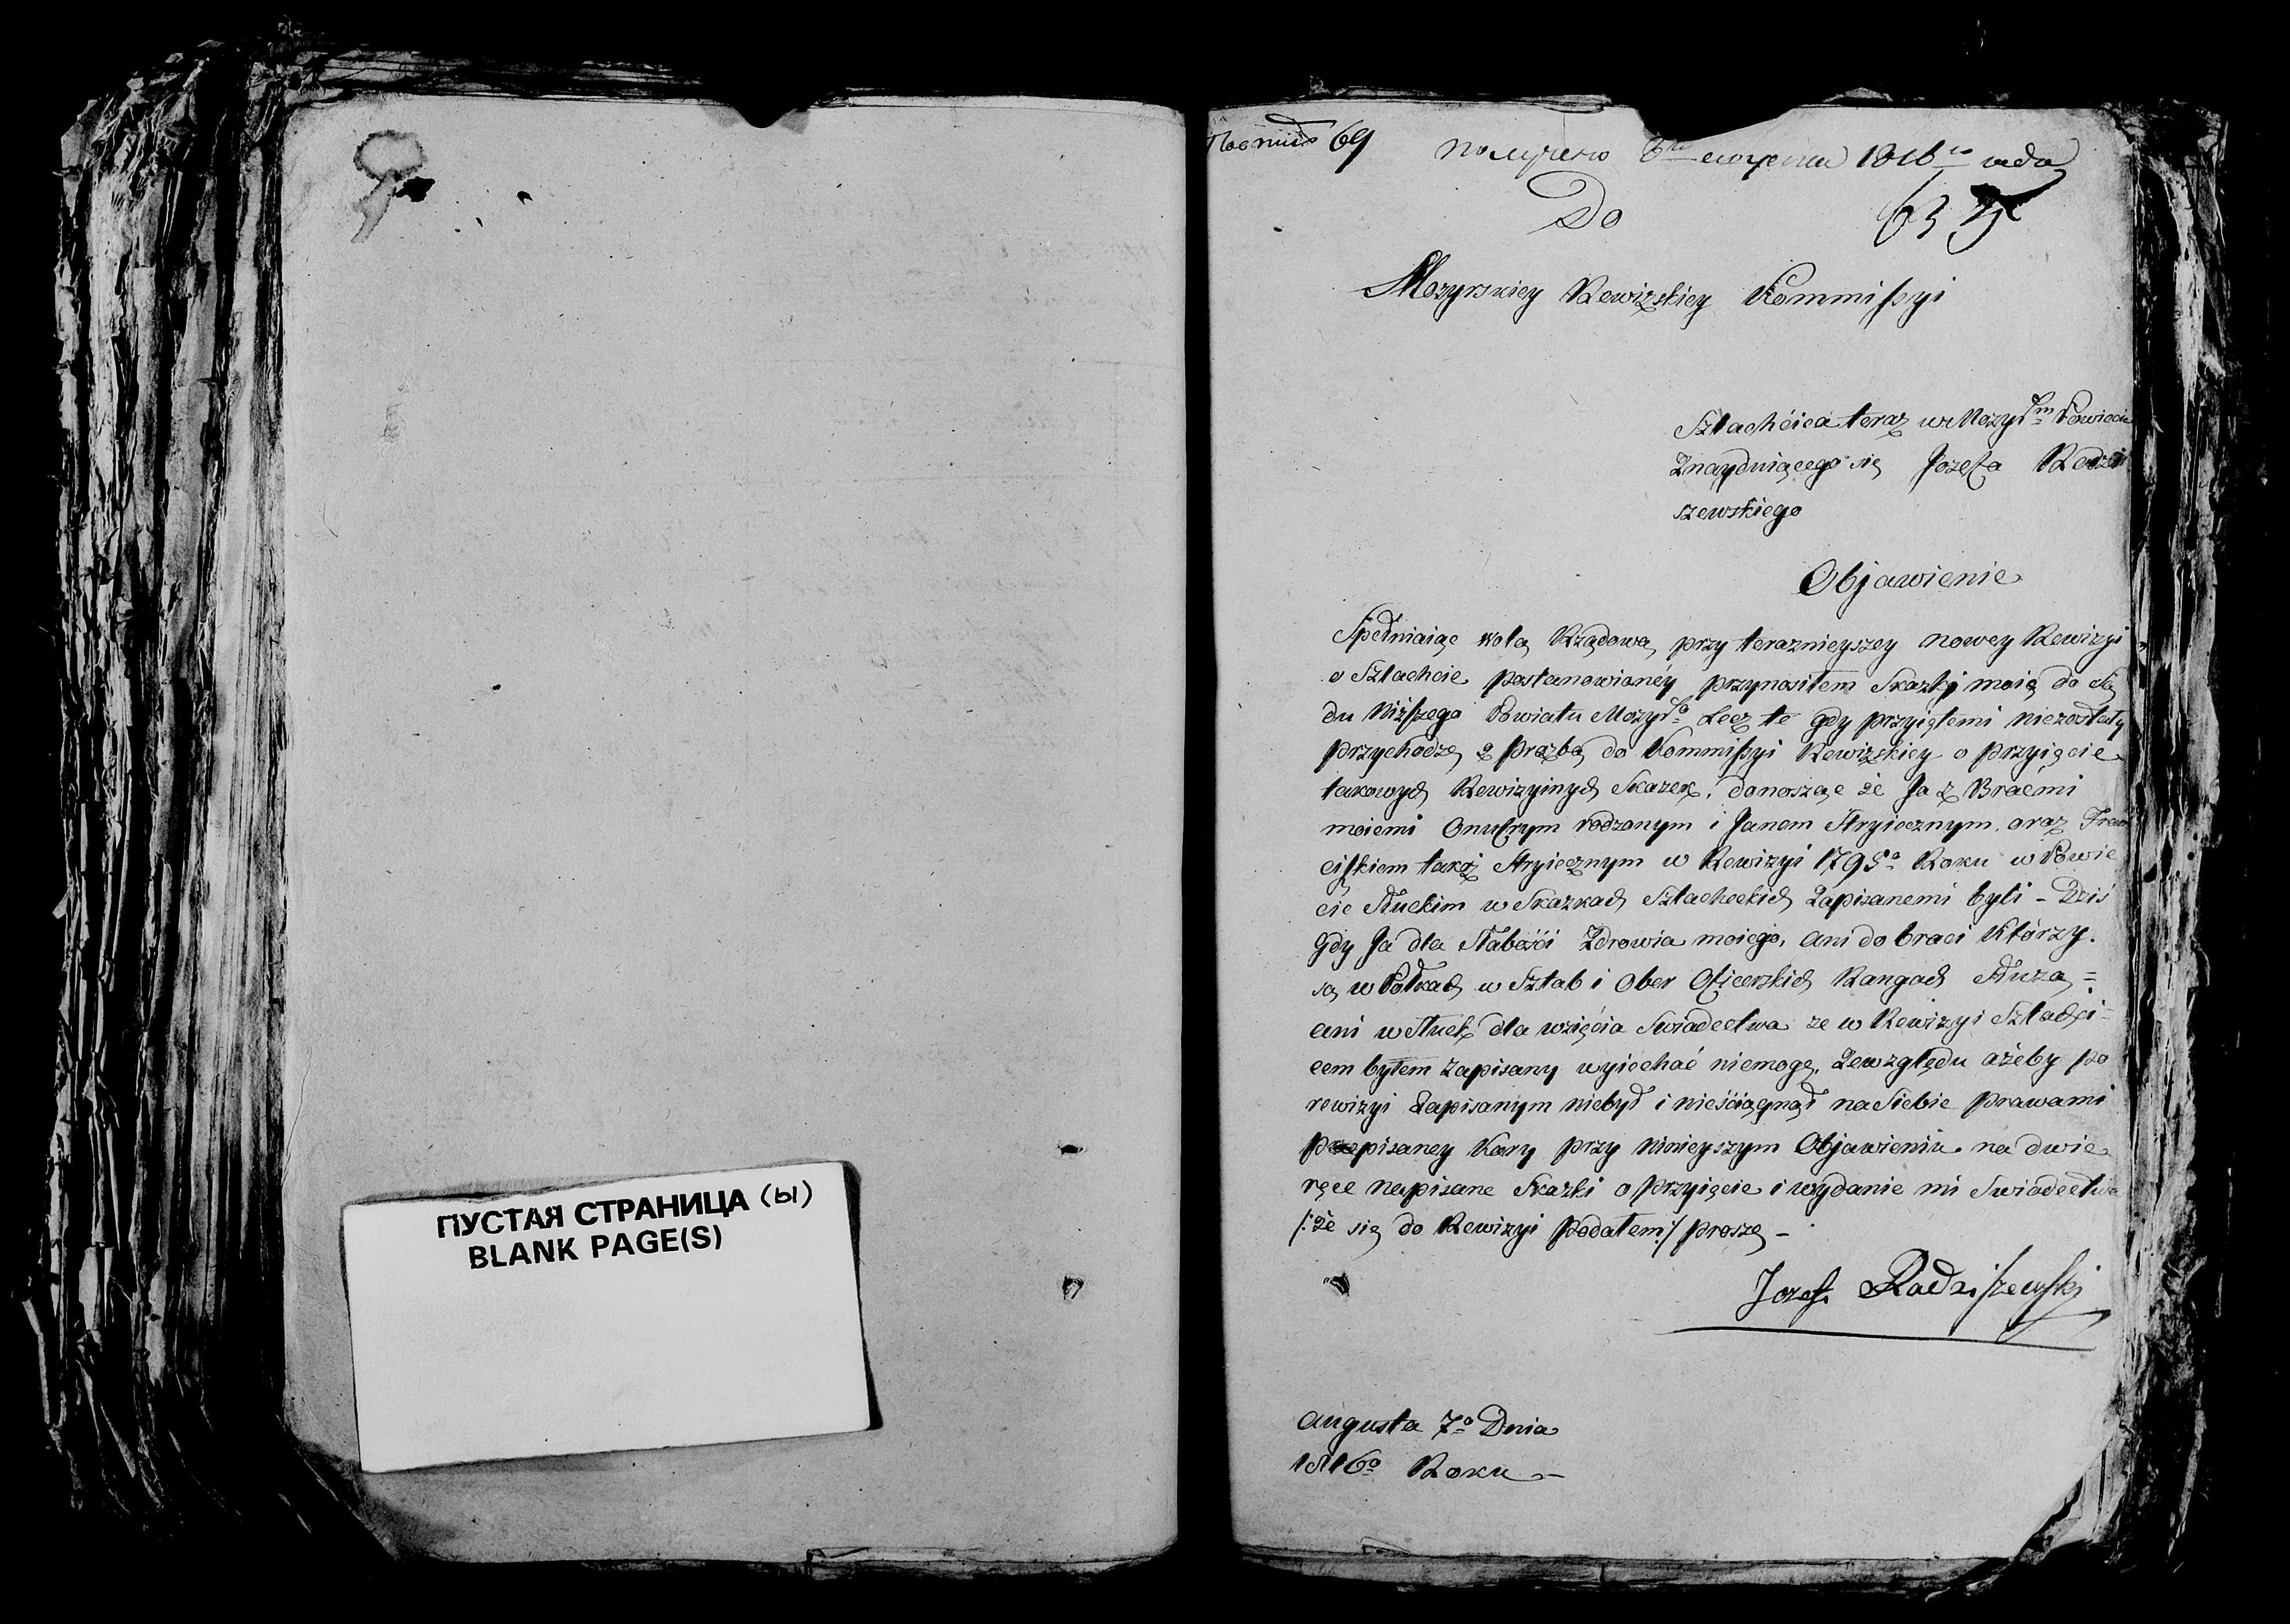 ПУСТАЯ СТРАНИЦА (ы)
BLANK PAGE(S)
69 получено августа 1816го года
Do
Mozyrskiey Rewizskiey Kommissyi
Szlachcica teraz w Mozyrm Powiecie
Znayduiącego się Jozefa Radzi
szewskiego
Objawienie
Spełniaiąc wolą Rządową przy teraznieyszey nowey Rewizyi
o Szlachcie postanowioney przynosiłem Skazkj moią do Są
du Niższego Powiatu Mozyro Lecz te gdy przyiętemi niezostały
przychodzę z prozbą do Kommissyi Rewizskiey o przyięcie
takowych Rewizyinych Skazek, donosząc że Ja z Braćmi
moiemi Onufrym rodzonym i Janem Stryiecznym, oraz Fran
ciszkiem takoż Stryiecznym w Rewizyi 1795o Roku w Powie
cie Słuckim w Skazkach Szlacheckich Zapisanemi byli – Dziś
gdy Ja dla Słabości Zdrowia moiego, ani do braci którzy
są w Półkach w Sztab i Ober Oficerskich Rangach Służą =
ani w Słuck dla wzięcia Swiadectwa ze w Rewizyi Szlachci-
cem byłem Zapisany wyiechać niemogę, Zewzględu ażeby po
rewizyi Zapisanym niebył i nieściągnął na Siebie prawami
przepisaney Kary przy ninieyszym Objawieniu na dwie
ręce napisane Skazki o przyięcie i wydanie mi Swiadectwa
/: że się do Rewizyi podałem :/ proszę –
Jozef Radziszewskj
Augusta 7o Dnia
1816o Roku –